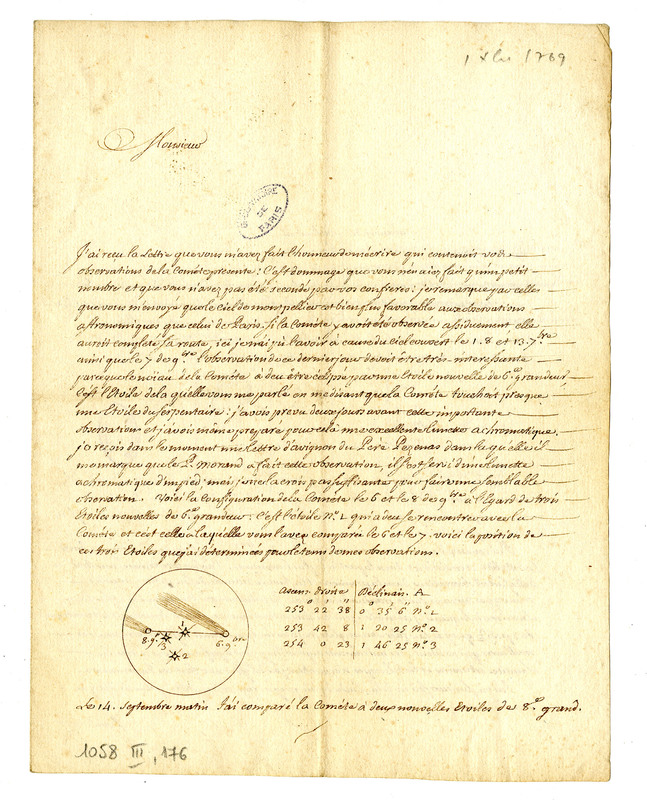 1 Xbre 1769
Monsieur
BSERVATOIRE DE PARIS
J'ai reçu la Lettre que vous m'avez fait l'honneur de m'écrire qui contenoit vos
observations de la Cométe presente: C'est dommage que vous n'en aiez fait qu'un petit
nombre et que vous n'avez pas été secondé par vos confreres: je remarque par celles
que vous m'envoyé que le Ciel de montpellier est bien plus favorable aux observations
astronomiques que celui de Paris. si la Cométe y avoit été observée assiduement elle
auroit complété sa route, ici je n'ai pû l'avoir à cause du ciel couvert le 1. 8 et 13. 7.bre
ainsi que le 7 de 9.bre l'observation de ce dernier jour devoit être très-interessante
parceque le noïau de la Cométe à deu être éclipsé par une Etoile nouvelle de 6.e grandeur,
C'est l'Etoile de laquelle vous me parlé en me disant que la Cométe touchoit presque
une Etoile du serpentaire: j'avois prevu deux jours avant cette importante
observation et j'avois même preparé pour cela mes excellente Lunette achromatique.
je reçois dans le moment une Lettre d'avignon du Pere Pezenas dans laquelle il
me marque que le P. Morand a fait cette observation, il s'est servi d'une Lunette
achromatique d'un pied; mais je ne la crois pas suffisante pour faire une semblable
observation. Voici la Configuration de la Cométe le 6 et le 8 de 9.bre à l'égard de trois
Etoiles nouvelles de 6.e grandeur. C'est l'étoile N.o 1 qui a deu se rencontrer avec la
Cométe et c'est celle à laquelle vous l'avez comparée le 6 et le 7. voici la position de
ces trois Etoiles que j'ai déterminées par le tems de mes observations.
8. 9.e 1 3 2 6. 9.bre
Ascens. droite Déclinais. A
253° 22' 38" 0° 35' 6" N.o 1
253 42 8 1 20 25 N.o 2
254 0 23 1 46 25 N.o 3
Le 14. Septembre matin J'ai comparé la Cométe à deux nouvelles Etoiles de 8.e grand.
1058 III, 176